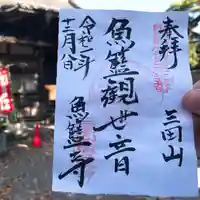 奉拝
三田山
魚籃観世音
魚籃寺
令和二年
十二月八日